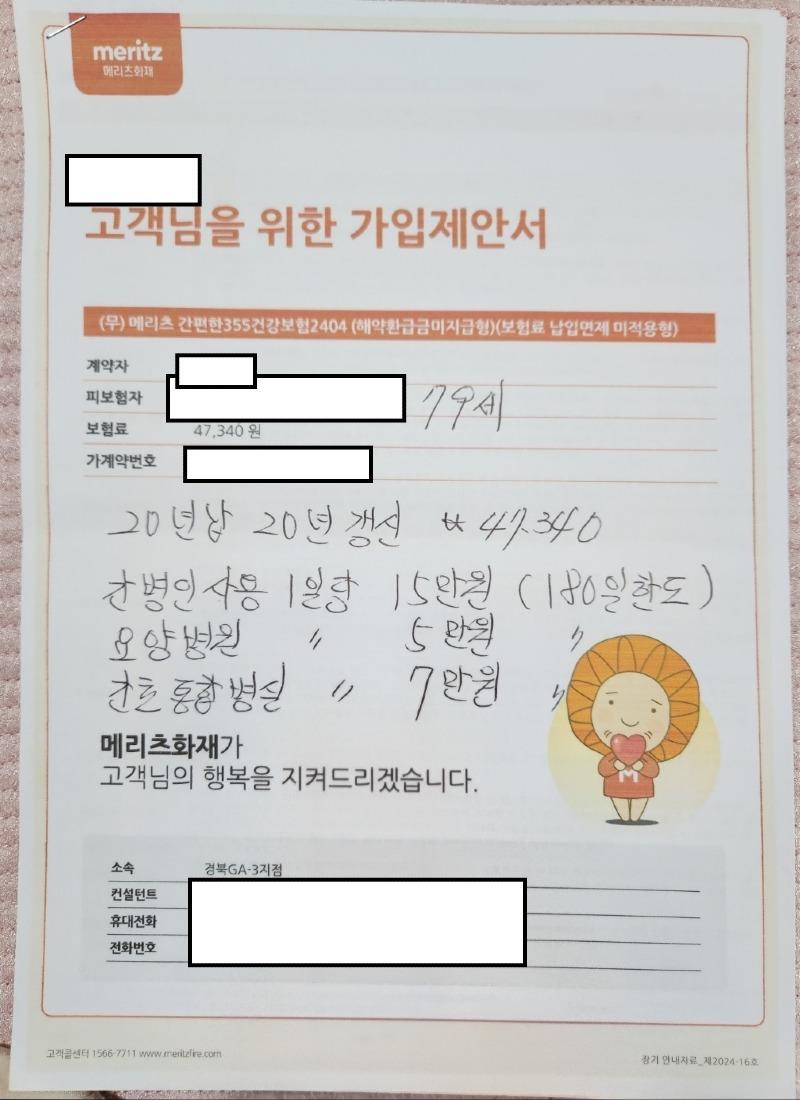 meritz
메리츠화재
고객님을 위한 가입제안서
(무) 메리츠 간편한355건강보험2404 (해약환급금미지급형)(보험료 납입면제 미적용형)
계약자
피보험자 79세
보험료 47,340 원
가계약번호
20년납 20년 갱신 ₩ 47.340
간병인사용 1일당 15만원 (180일한도)
요양병원 〃 5만원 〃
간호통합병실 〃 7만원 〃
메리츠화재가
고객님의 행복을 지켜드리겠습니다.
M
소속 경북GA-3지점
컨설턴트
휴대전화
전화번호
고객콜센터 1566-7711 www.meritzfire.com
장기 안내자료_제2024-16호